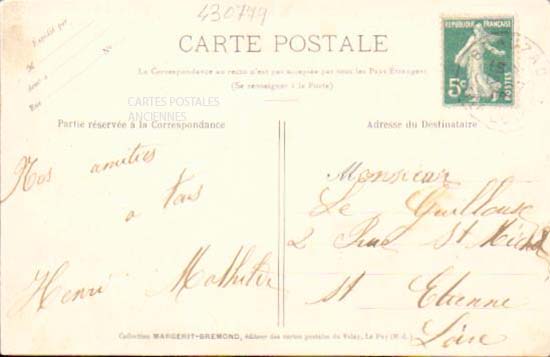 430779
Expédié par
M
dem. à
Rue
N°
CARTE POSTALE
La Correspondance au recto n'est pas acceptée par tous les Pays Étrangers
(Se renseigner à la Poste)
RÉPUBLIQUE FRANÇAISE
5c
POSTES
CARTES POSTALES
ANCIENNES
Partie réservée à la Correspondance
Nos amitiés
a tous
Henri
Adresse du Destinataire
Monsieur
Le
2 Rue St Michel
St Etienne
Loire
Collection MARGERIT-BREMOND, éditeur des cartes postales du Velay, Le Puy (H.-L.)